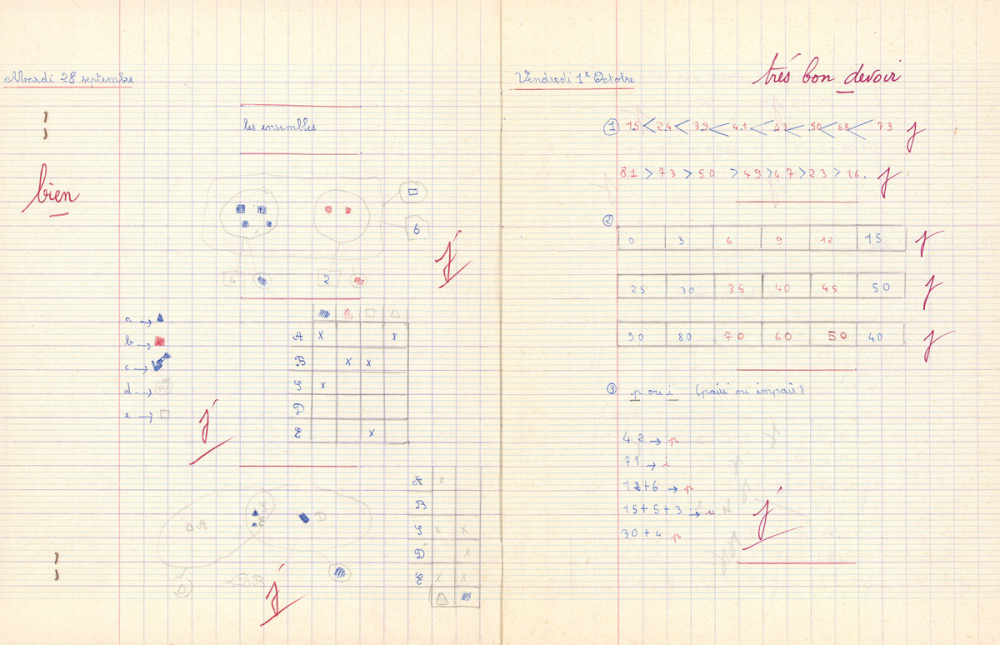 Mardi 28 septembre
bien
les ensembles
6
4 2
a →
b →
c →
d →
e →
A x x
B x x
C x
D
E x
A x
B
C x x
D x
E x x
A E D
B
Vendredi 1er Octobre
très bon devoir
① 15 < 24 < 39 < 41 < 47 < 50 < 68 < 73
81 > 73 > 50 > 49 > 47 > 23 > 16.
②
0 3 6 9 12 15
25 30 35 40 45 50
90 80 70 60 50 40
③ p ou i (pair ou impair)
42 → p
71 → i
12+6 → p
15+5+3 → i
30+4 p